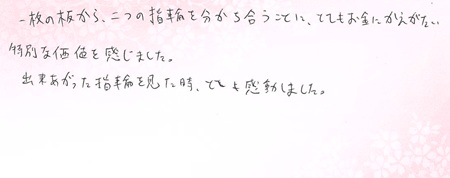 一枚の板から、二つの指輪を分かち合うことに、とてもお金にかえがたい
特別な価値を感じました。
出来あがった指輪を見た時、とても感動しました。